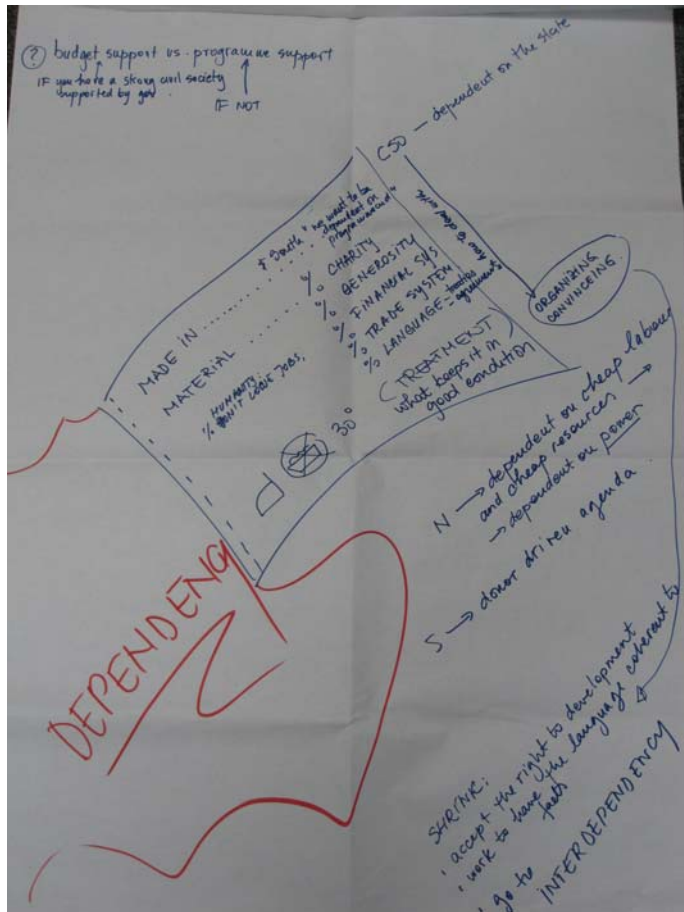 ? budget support vs. programme support
IF you have a strong civil society
supported by gov.
IF NOT
CSO — dependent on the state
how to deal with
ORGANIZING
CONVINCEING.
$ South "no want to be
dependent on
programme aid"
MADE IN ..............
MATERIAL ..........
% CHARITY
% GENEROSITY
% FINANCIAL SYS
% TRADE SYSTEM
% LANGUAGE = trading
agreements
% HUMANITY:
DON'T LOOSE JOBS,
(TREATMENT)
what keeps it in
good condition
30°
DEPENDENCY
N → dependent on cheap labour
and cheap resources →
→ dependent on power
S → donor driven agenda.
SHRINK:
, accept the right to development
, work to have the language coherent to
facts
, go to
INTERDEPENDENCY